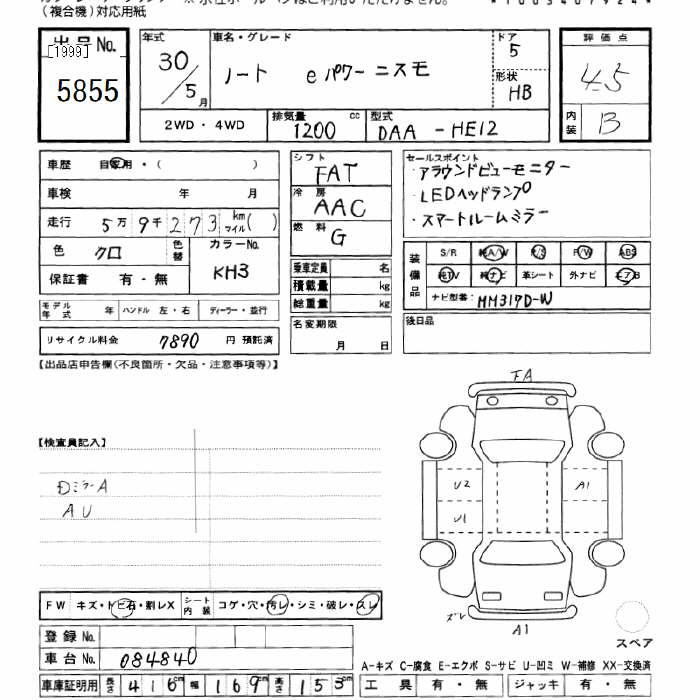 （複合機）対応用紙
出品No.
[1999]
5855
年式
30/5月
車名・グレード
ノート eパワーニスモ
ドア
5
形状
HB
評価点
4.5
内装
B
2WD・4WD
排気量
1200 cc
型式
DAA-HE12
車歴 自家用・( )
車検 年 月
走行 5万9千273 km マイル( )
色 クロ
色替
カラーNo.
KH3
保証書 有・無
モデル年式 年
ハンドル 左・右
ディーラー・並行
リサイクル料金 7890 円 預託済
シフト
FAT
冷房
AAC
燃料
G
乗車定員 名
積載量 kg
総重量 kg
名変期限
月 日
セールスポイント
・アラウンドビューモニター
・LEDヘッドランプ
・スマートルームミラー
装備品
S/R 純A/W P/S P/W ABS
純TV 純ナビ 革シート 外ナビ エアB
ナビ型番: MM317D-W
後日品
【出品店申告欄(不良箇所・欠品・注意事項等)】
【検査員記入】
DミラーA
AU
FA
U2
U1
A1
ズレ
A1
スペア
FW キズ・トビ石・割レX
シート内装 コゲ・穴・汚レ・シミ・破レ・スレ
登録No.
車台No. 084840
車庫証明用 長さ 416cm 幅 169cm 高さ 153cm
A-キズ C-腐食 E-エクボ S-サビ U-凹ミ W-補修 XX-交換済
工具 有・無
ジャッキ 有・無